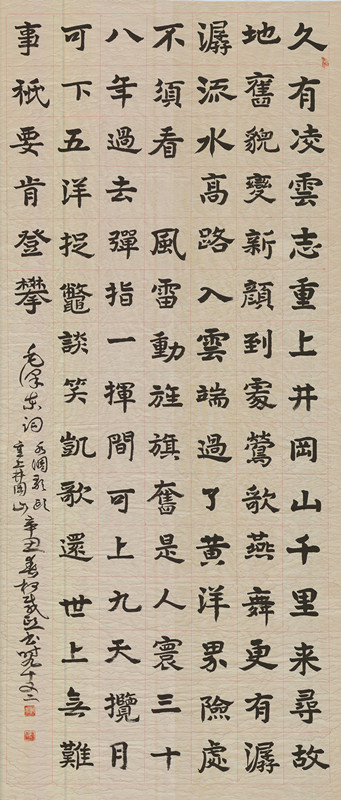 久有凌雲志重上井岡山千里来尋故
地舊貌變新顏到處鶯歌燕舞更有潺
潺流水高路入雲端過了黄洋界險處
不須看 風雷動旌旗奮是人寰三十
八年過去彈指一揮間可上九天攬月
可下五洋捉鱉談笑凱歌還世上無難
事祇要肯登攀
毛澤東词
水调歌頭
重上井岡山
辛丑春